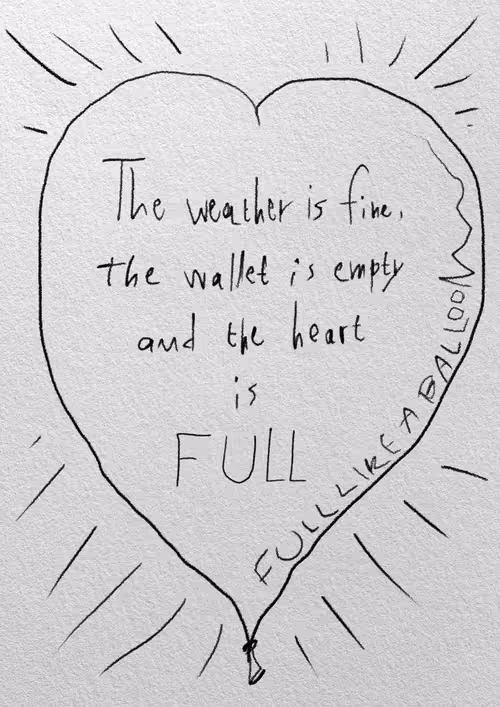 The weather is fine,
the wallet is empty
and the heart
is
FULL
FULL LIKE A BALLOON